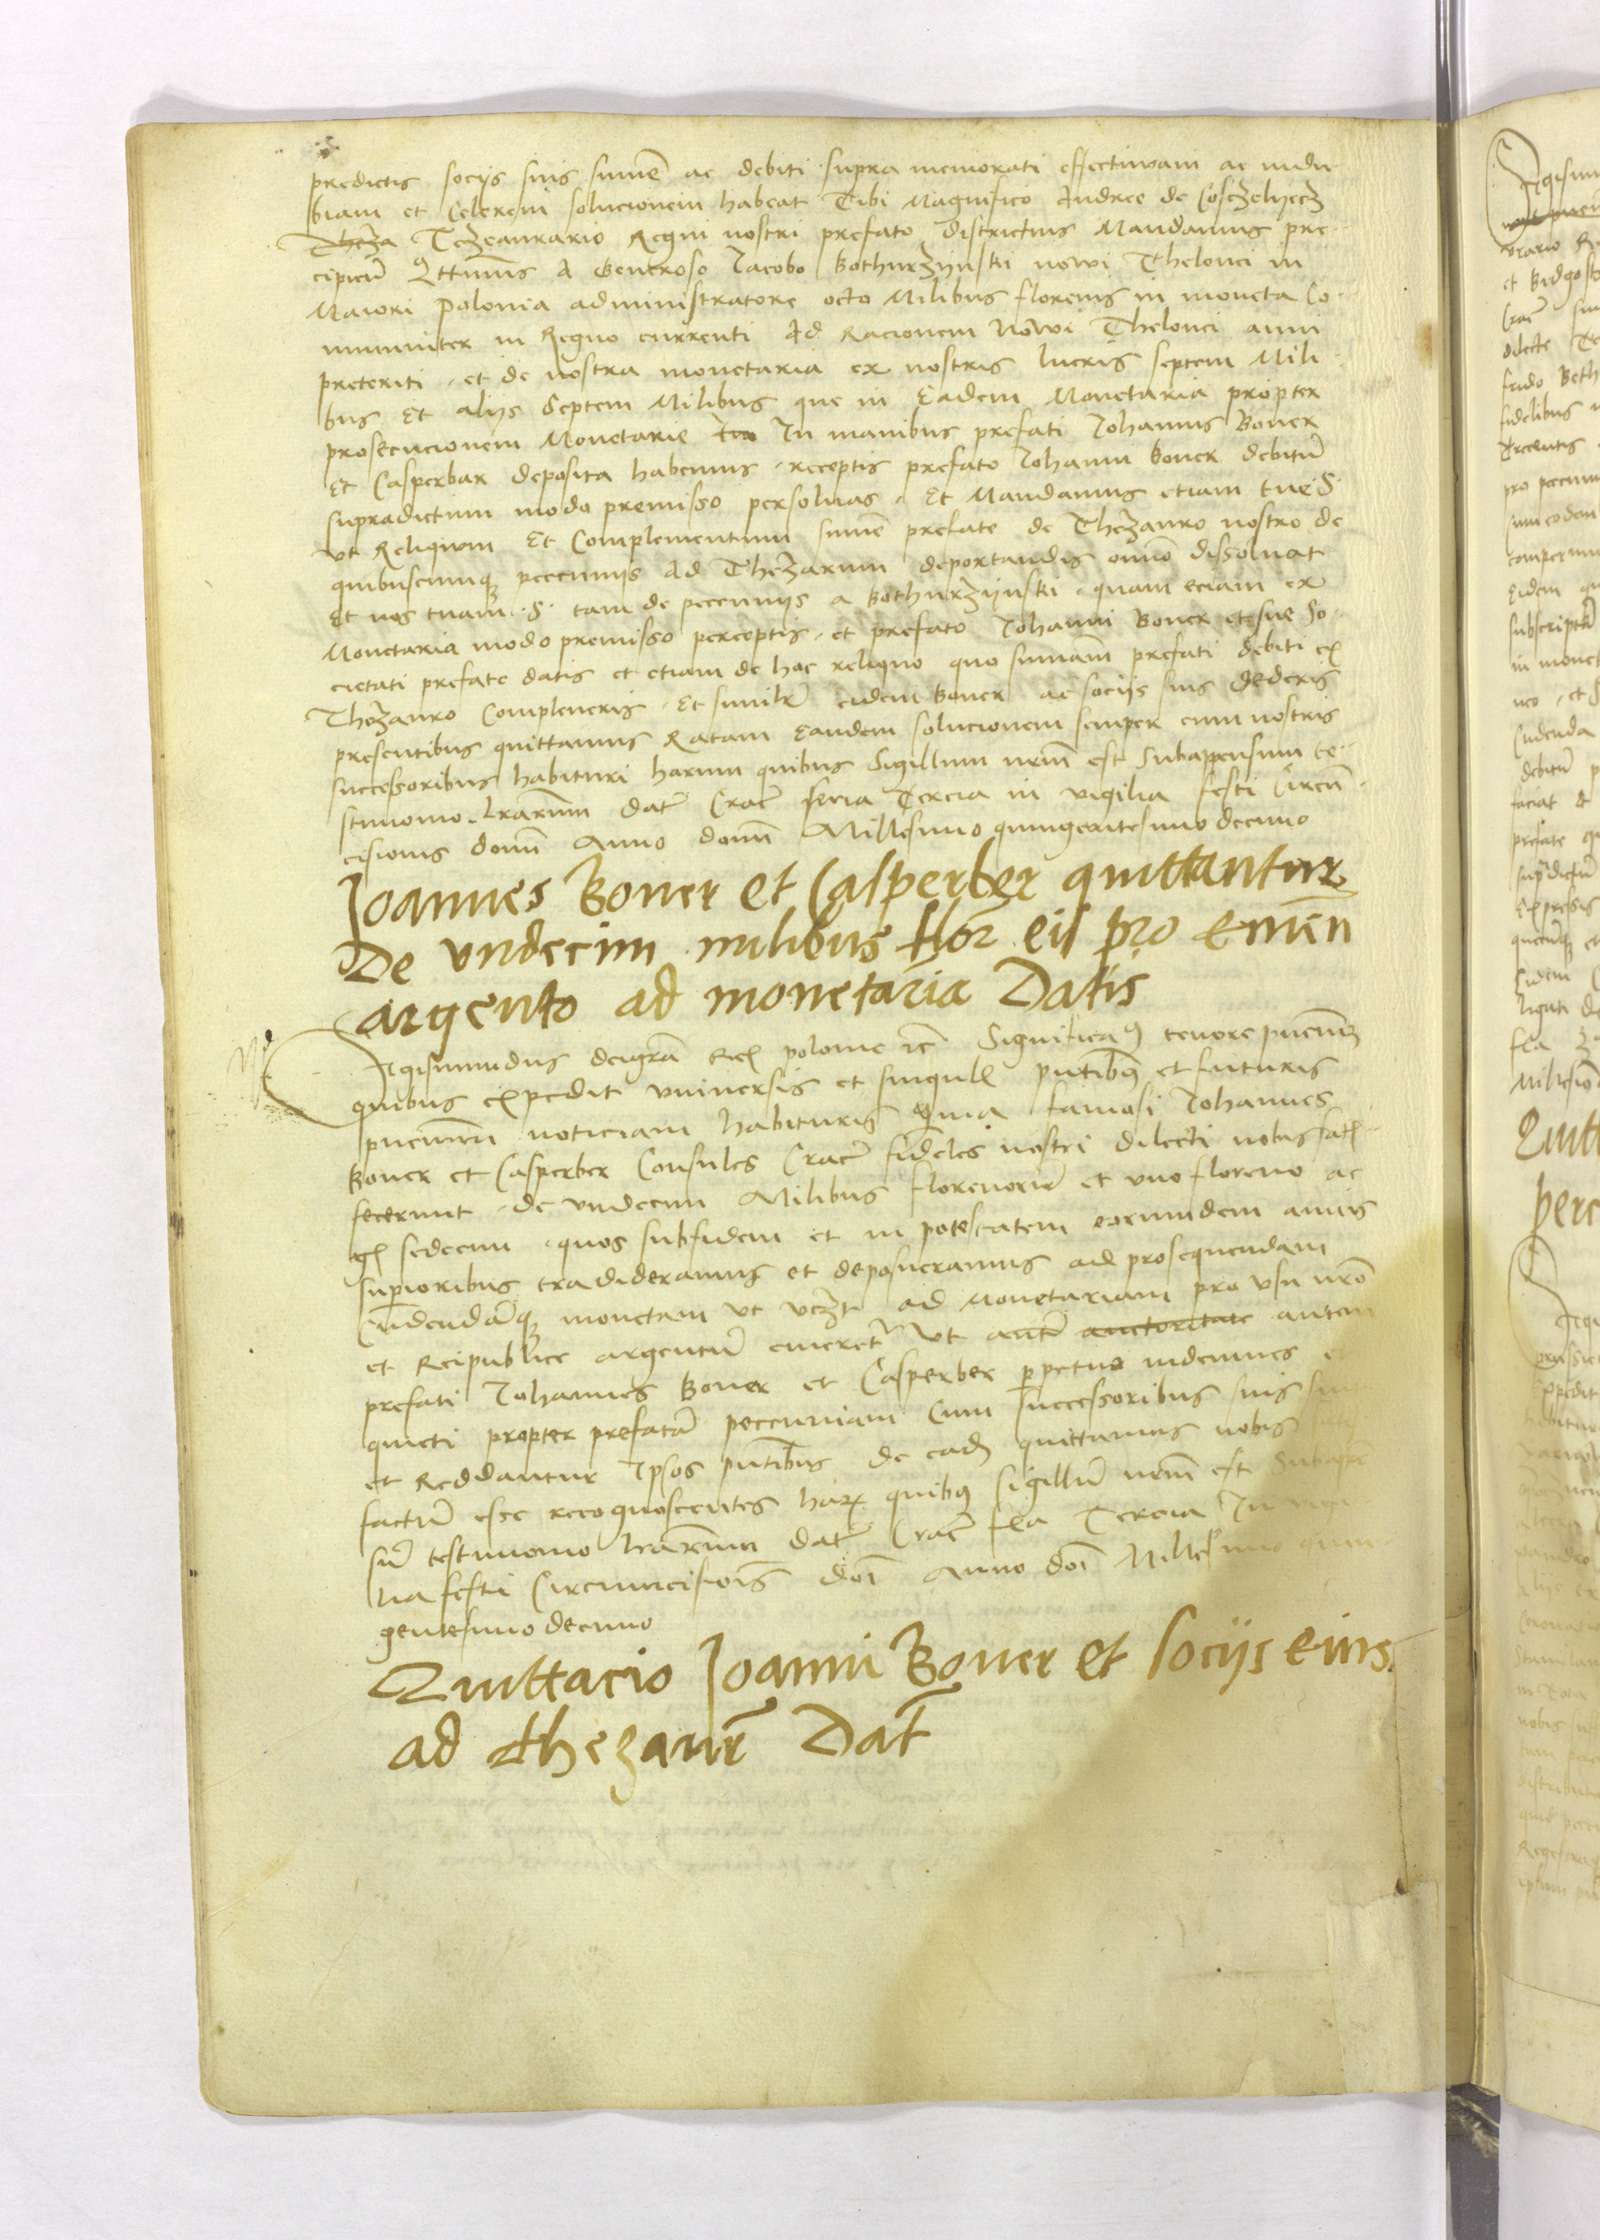 predictis socijs suis summe ac debiti supra memorati effectiuam ac indu-
biam et Celerem solucionem habeat Tibi Magnifico Andree de Cosczelyecz
Theza Tezeaurario Regni nostri prefato districtius Mandamus pre-
cipietn̄ Qttinus A Generoso Jacobo Kothurzijnski nowi Thelonei in
Maiori Polonia administratore octo Milibus florenis in moneta Co-
muniter in Regno currenti Ad Racionem Nowi Thelonei anni
preteriti, et de nostra monetaria ex nostris lucris septem Mili-
bus Et alijs Septem Milibus que in Eadem Monetaria propter
prosecucionem Monetarie In manibus prefati Johannis Boner
Et Casperbar deposita habemus, receptis prefato Johanni boner debitū
supradictum modo premisso persoluas. Et Mandamus etiam tue S.
vt Reliquum Et Complementum summe prefate de Thezauro nostro de
quibuscumq̄ pecunijs Ad Thezarum deportandis omnino dissoluat
Et nos tuam .S. tam de pecunijs a Kothurzijnski, quam eciam ex
Monetaria modo premisso perceptis, et prefato Johanni Boner et sue So-
cietati prefate datis et etiam de hac reliquo quo summam prefati debiti ex
Thezauro Compleueris, Et similr eidem boner ac socijs suis dederis
presentibus quittamus Ratam Eandem solucionem semper cum nostris
successoribus habituri harum quibus Sigillum nrm̄ est subappensum te-
stimonio lrarum dat Crac feria Tercia in vigilia festi Circun-
cisionis domī Anno domī Millesimo quingentesimo decimo
Joannes Boner et Casperber quittantur
De vndecim milibus flor eis pro emen
argento ad monetaria Datis
Sigismundus dei grā Rex polonie zc Significa9 tenore pntium
quibus expedit vniuersis et singulis pntibus et futuris
pntium noticiam habituris Quia famosi Johannes
Boner et Casperber Consules Crac fideles nostri dilecti nobis satis-
fecerunt de vndecim Milibus florenorū et vno floreno ac
gr sedecim, quos subfidem et in potestatem eorumdem annis
superioribus tradideramus et deposueramus ad prosequendam
Cudendāq̄ monetam vt vczt ad Monetariam pro vsu nrō
et Reipublice argentū emeretr Vt autē auctoritate autem
prefati Johannes Boner et Casperber perpetuo indemnes
quieti propter prefatā pecuniam Cum successoribus suis
et Reddantur Ipsos pntibus de eadē quittamus nobis
factū esse recognoscentes harz quibus sigillū nrm̄ est Subapen-
sū testimonio lrarum dat Crac fla Tercia In vigi-
lia festi Circumcisionis doī Anno doī Millesimo quin-
gentesimo decimo
Quittacio Joanni Boner et socijs eius
ad thezaur Dat